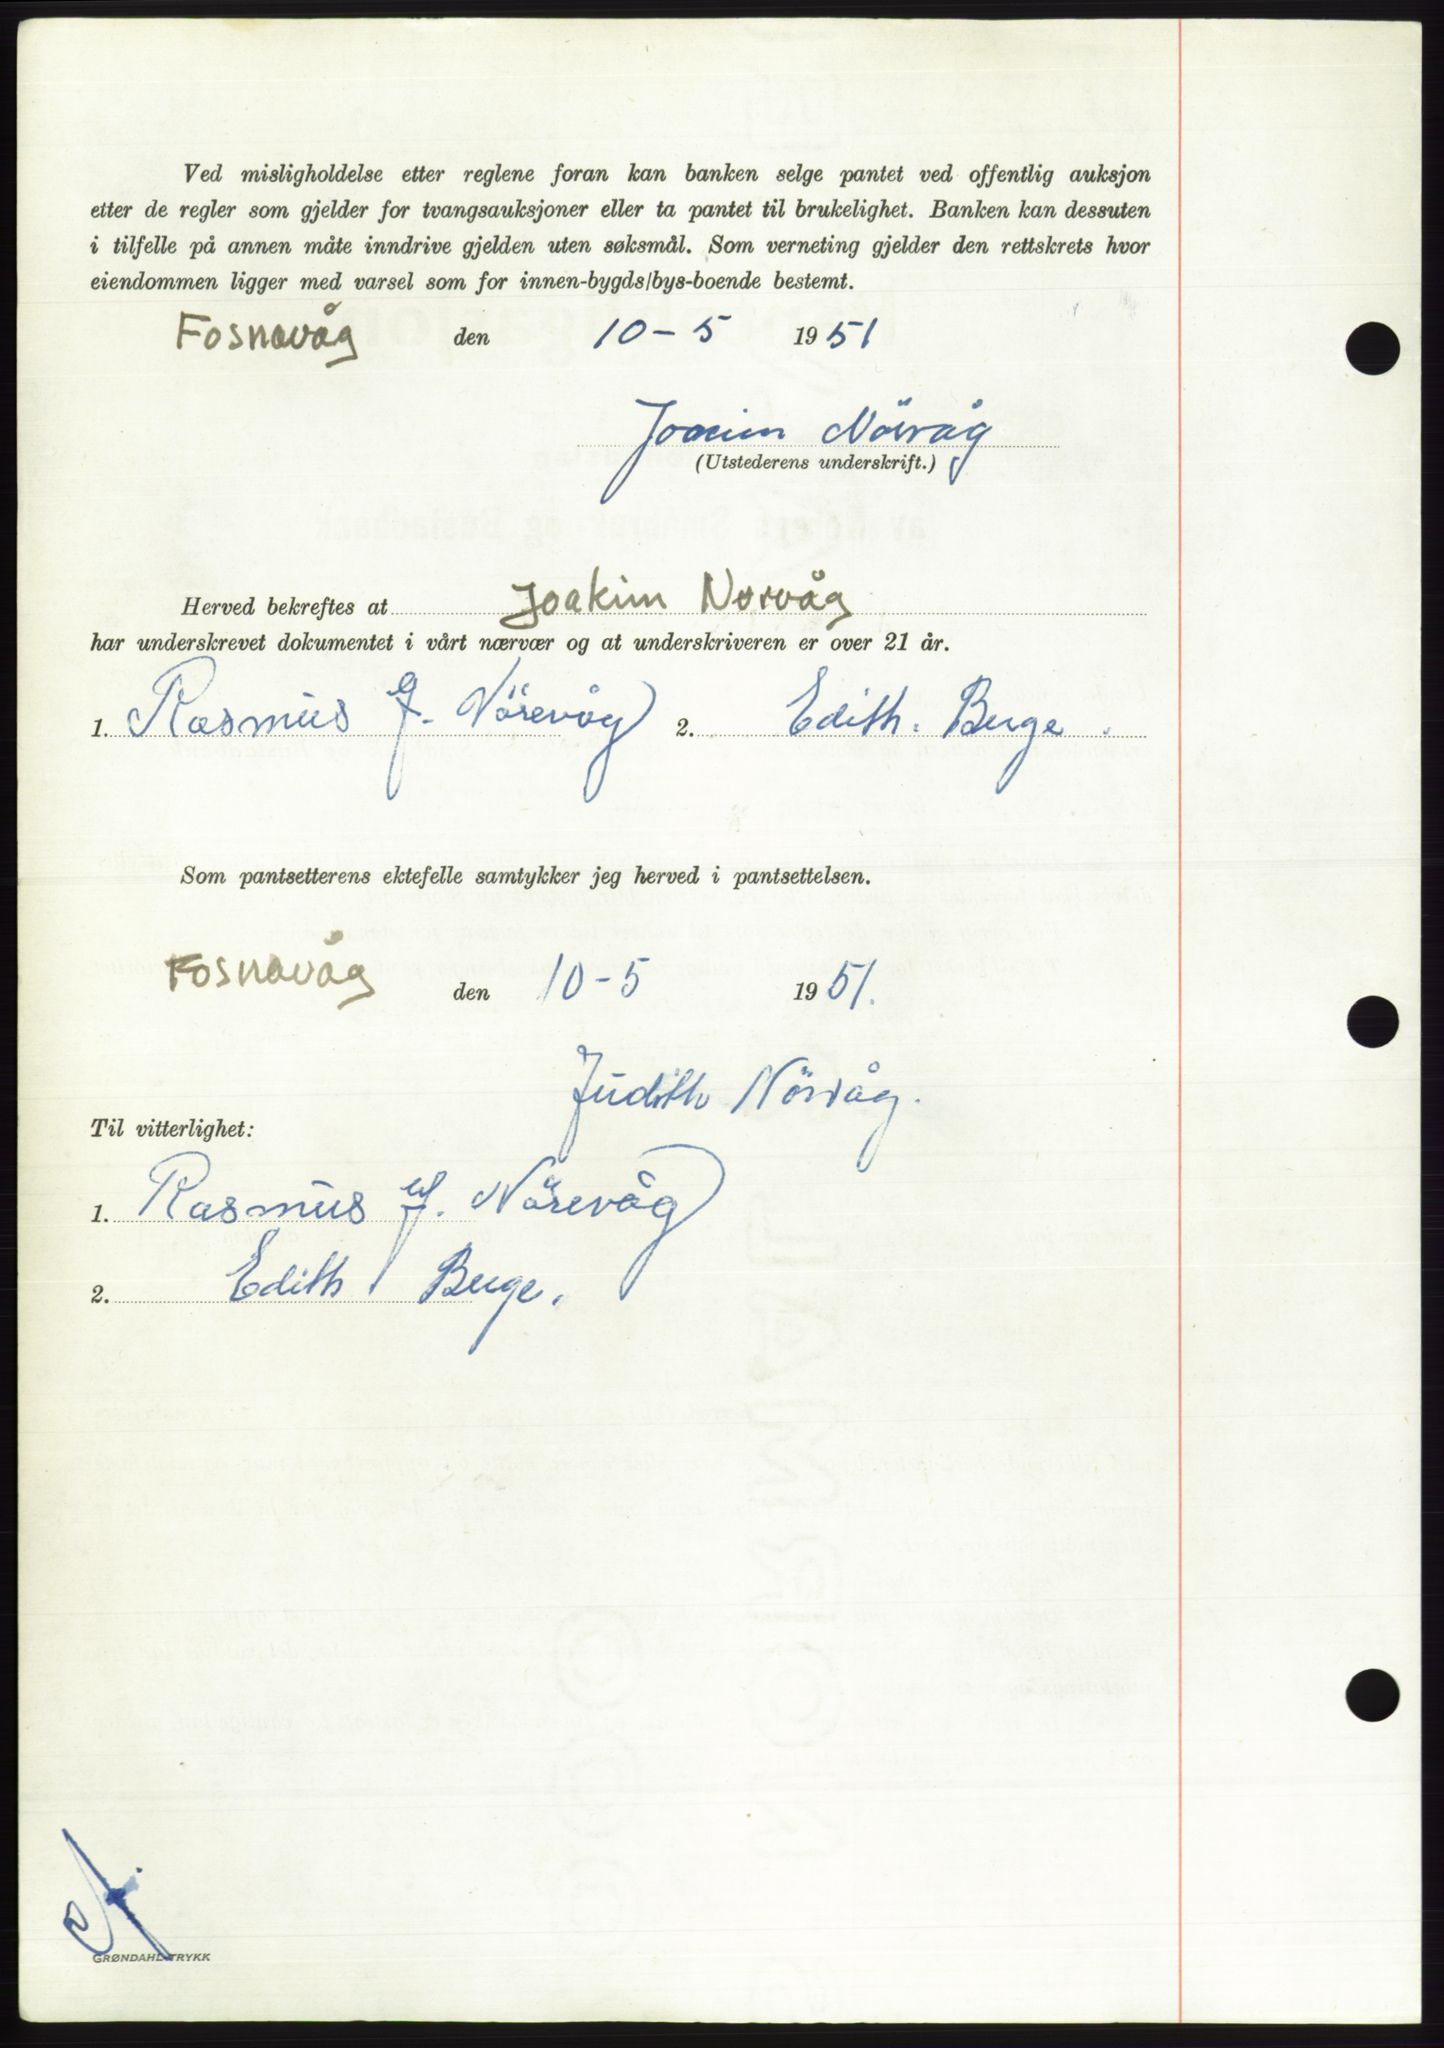 Ved misligholdelse etter reglene foran kan banken selge pantet ved offentlig auksjon
etter de regler som gjelder for tvangsauksjoner eller ta pantet til brukelighet. Banken kan dessuten
i tilfelle på annen måte inndrive gjelden uten søksmål. Som verneting gjelder den rettskrets hvor
eiendommen ligger med varsel som for innen-bygds/bys-boende bestemt.
Fosnavåg den 10-5 1951
Joacim Nörvåg
(Utstederens underskrift.)
Herved bekreftes at Joakim Norvåg
har underskrevet dokumentet i vårt nærvær og at underskriveren er over 21 år.
1. Rasmus J. Nörevåg 2. Edith. Berge.
Som pantsetterens ektefelle samtykker jeg herved i pantsettelsen.
Fosnavåg den 10-5 1951.
Judith Nörvåg.
Til vitterlighet:
1. Rasmus J. Nörevåg
2. Edith Berge.
GRØNDAHL TRYKK